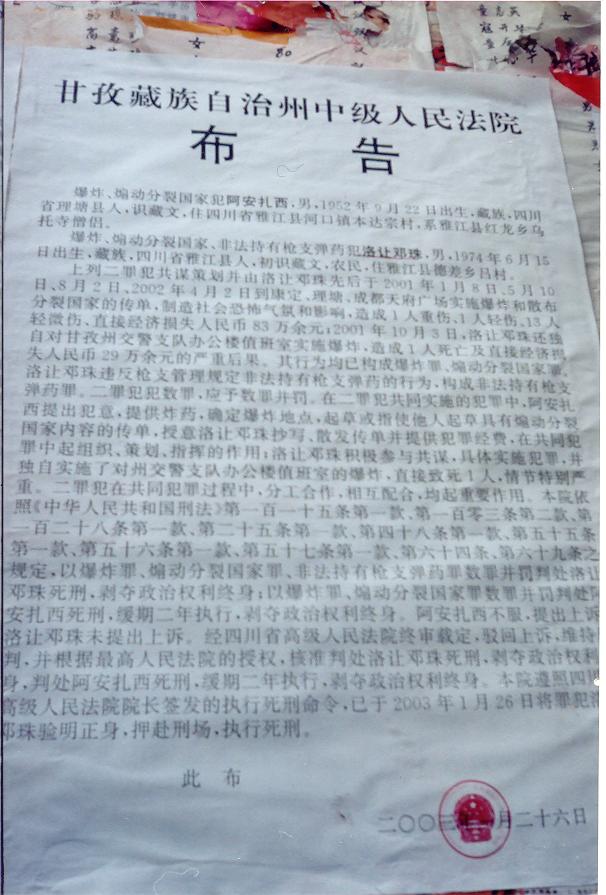 女
80
女
甘孜藏族自治州中级人民法院
布 告
爆炸、煽动分裂国家犯阿安扎西,男,1952年9月22日出生,藏族,四川
省理塘县人,识藏文,住四川省雅江县河口镇本达宗村,系雅江县红龙乡乌
托寺僧侣。
爆炸、煽动分裂国家、非法持有枪支弹药犯洛让邓珠,男,1974年6月15
日出生,藏族,四川省雅江县人,初识藏文,农民,住雅江县德差乡吕村。
上列二罪犯共谋策划并由洛让邓珠先后于2001年1月8日、5月10
日、8月2日、2002年4月2日到康定、理塘、成都天府广场实施爆炸和散布
分裂国家的传单,制造社会恐怖气氛和影响,造成1人重伤、1人轻伤、13人
轻微伤、直接经济损失人民币83万余元;2001年10月3日,洛让邓珠还独
自对甘孜州交警支队办公楼值班室实施爆炸,造成1人死亡及直接经济损
失人民币29万余元的严重后果。其行为均已构成爆炸罪、煽动分裂国家罪。
洛让邓珠违反枪支管理规定非法持有枪支弹药的行为,构成非法持有枪支
弹药罪。二罪犯犯数罪,应予数罪并罚。在二罪犯共同实施的犯罪中,阿安扎
西提出犯意,提供炸药,确定爆炸地点,起草或指使他人起草具有煽动分裂
国家内容的传单,授意洛让邓珠抄写、散发传单并提供犯罪经费,在共同犯
罪中起组织、策划、指挥的作用;洛让邓珠积极参与共谋,具体实施犯罪,并
独自实施了对州交警支队办公楼值班室的爆炸,直接致死1人,情节特别严
重。二罪犯在共同犯罪过程中,分工合作,相互配合,均起重要作用。本院依
照《中华人民共和国刑法》第一百一十五条第一款、第一百零三条第二款、第
一百二十八条第一款、第二十五条第一款、第四十八条第一款、第五十五条
第一款、第五十六条第一款、第五十七条第一款、第六十四条、第六十九条之
规定,以爆炸罪、煽动分裂国家罪、非法持有枪支弹药罪数罪并罚判处洛让
邓珠死刑,剥夺政治权利终身;以爆炸罪、煽动分裂国家罪数罪并罚判处阿
安扎西死刑,缓期二年执行,剥夺政治权利终身。阿安扎西不服,提出上诉
洛让邓珠未提出上诉。经四川省高级人民法院终审裁定,驳回上诉,维持
判,并根据最高人民法院的授权,核准判处洛让邓珠死刑,剥夺政治权利
身,判处阿安扎西死刑,缓期二年执行,剥夺政治权利终身。本院遵照四川
高级人民法院院长签发的执行死刑命令,已于2003年1月26日将罪犯洛
邓珠验明正身,押赴刑场,执行死刑。
此 布
二〇〇三年 月二十六日